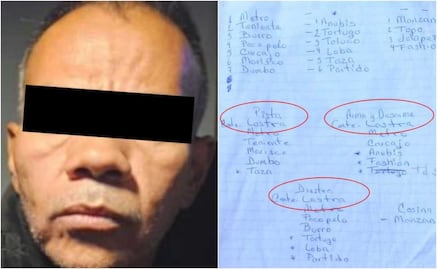 1 Metro
2 Teniente
3 Burro
4 Pocopelo
5 Carcajo
6 Morisco
7 Dumbo
8
- 1 Anubis
- 2 Tortugo
- 3 Toluco
- 4 Loba
- 5 Taza
- 6 Partido
1 Manzan
2 Topo
4 Fashio
Pista
Cmte. Lastra
Metro
Teniente
Morisco
Dumbo
* Taza
Arma y Desarme
Cmte. Lastra
Metro
Carcajo
* Anubis
* Fashion
* Tortugo
Diestro
Cmte. Lastra
Metro
Pocopelo
Burro
* Tortugo
* Loba
* Partido
Cosina
- Manzan